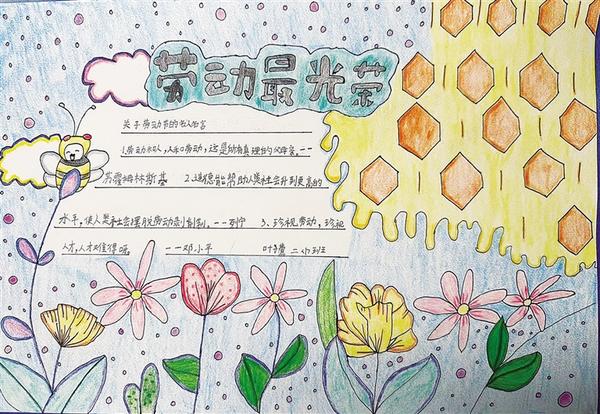 劳动最光荣
关于劳动节的名人名言
1.劳动和人,人和劳动,这是所有真理的父母亲。——
苏霍姆林斯基 2.道德能帮助人类社会升到更高的
水平,使人类社会摆脱劳动剥削制。——列宁 3、珍视劳动,珍视
人才,人才难得呀。——邓小平 班